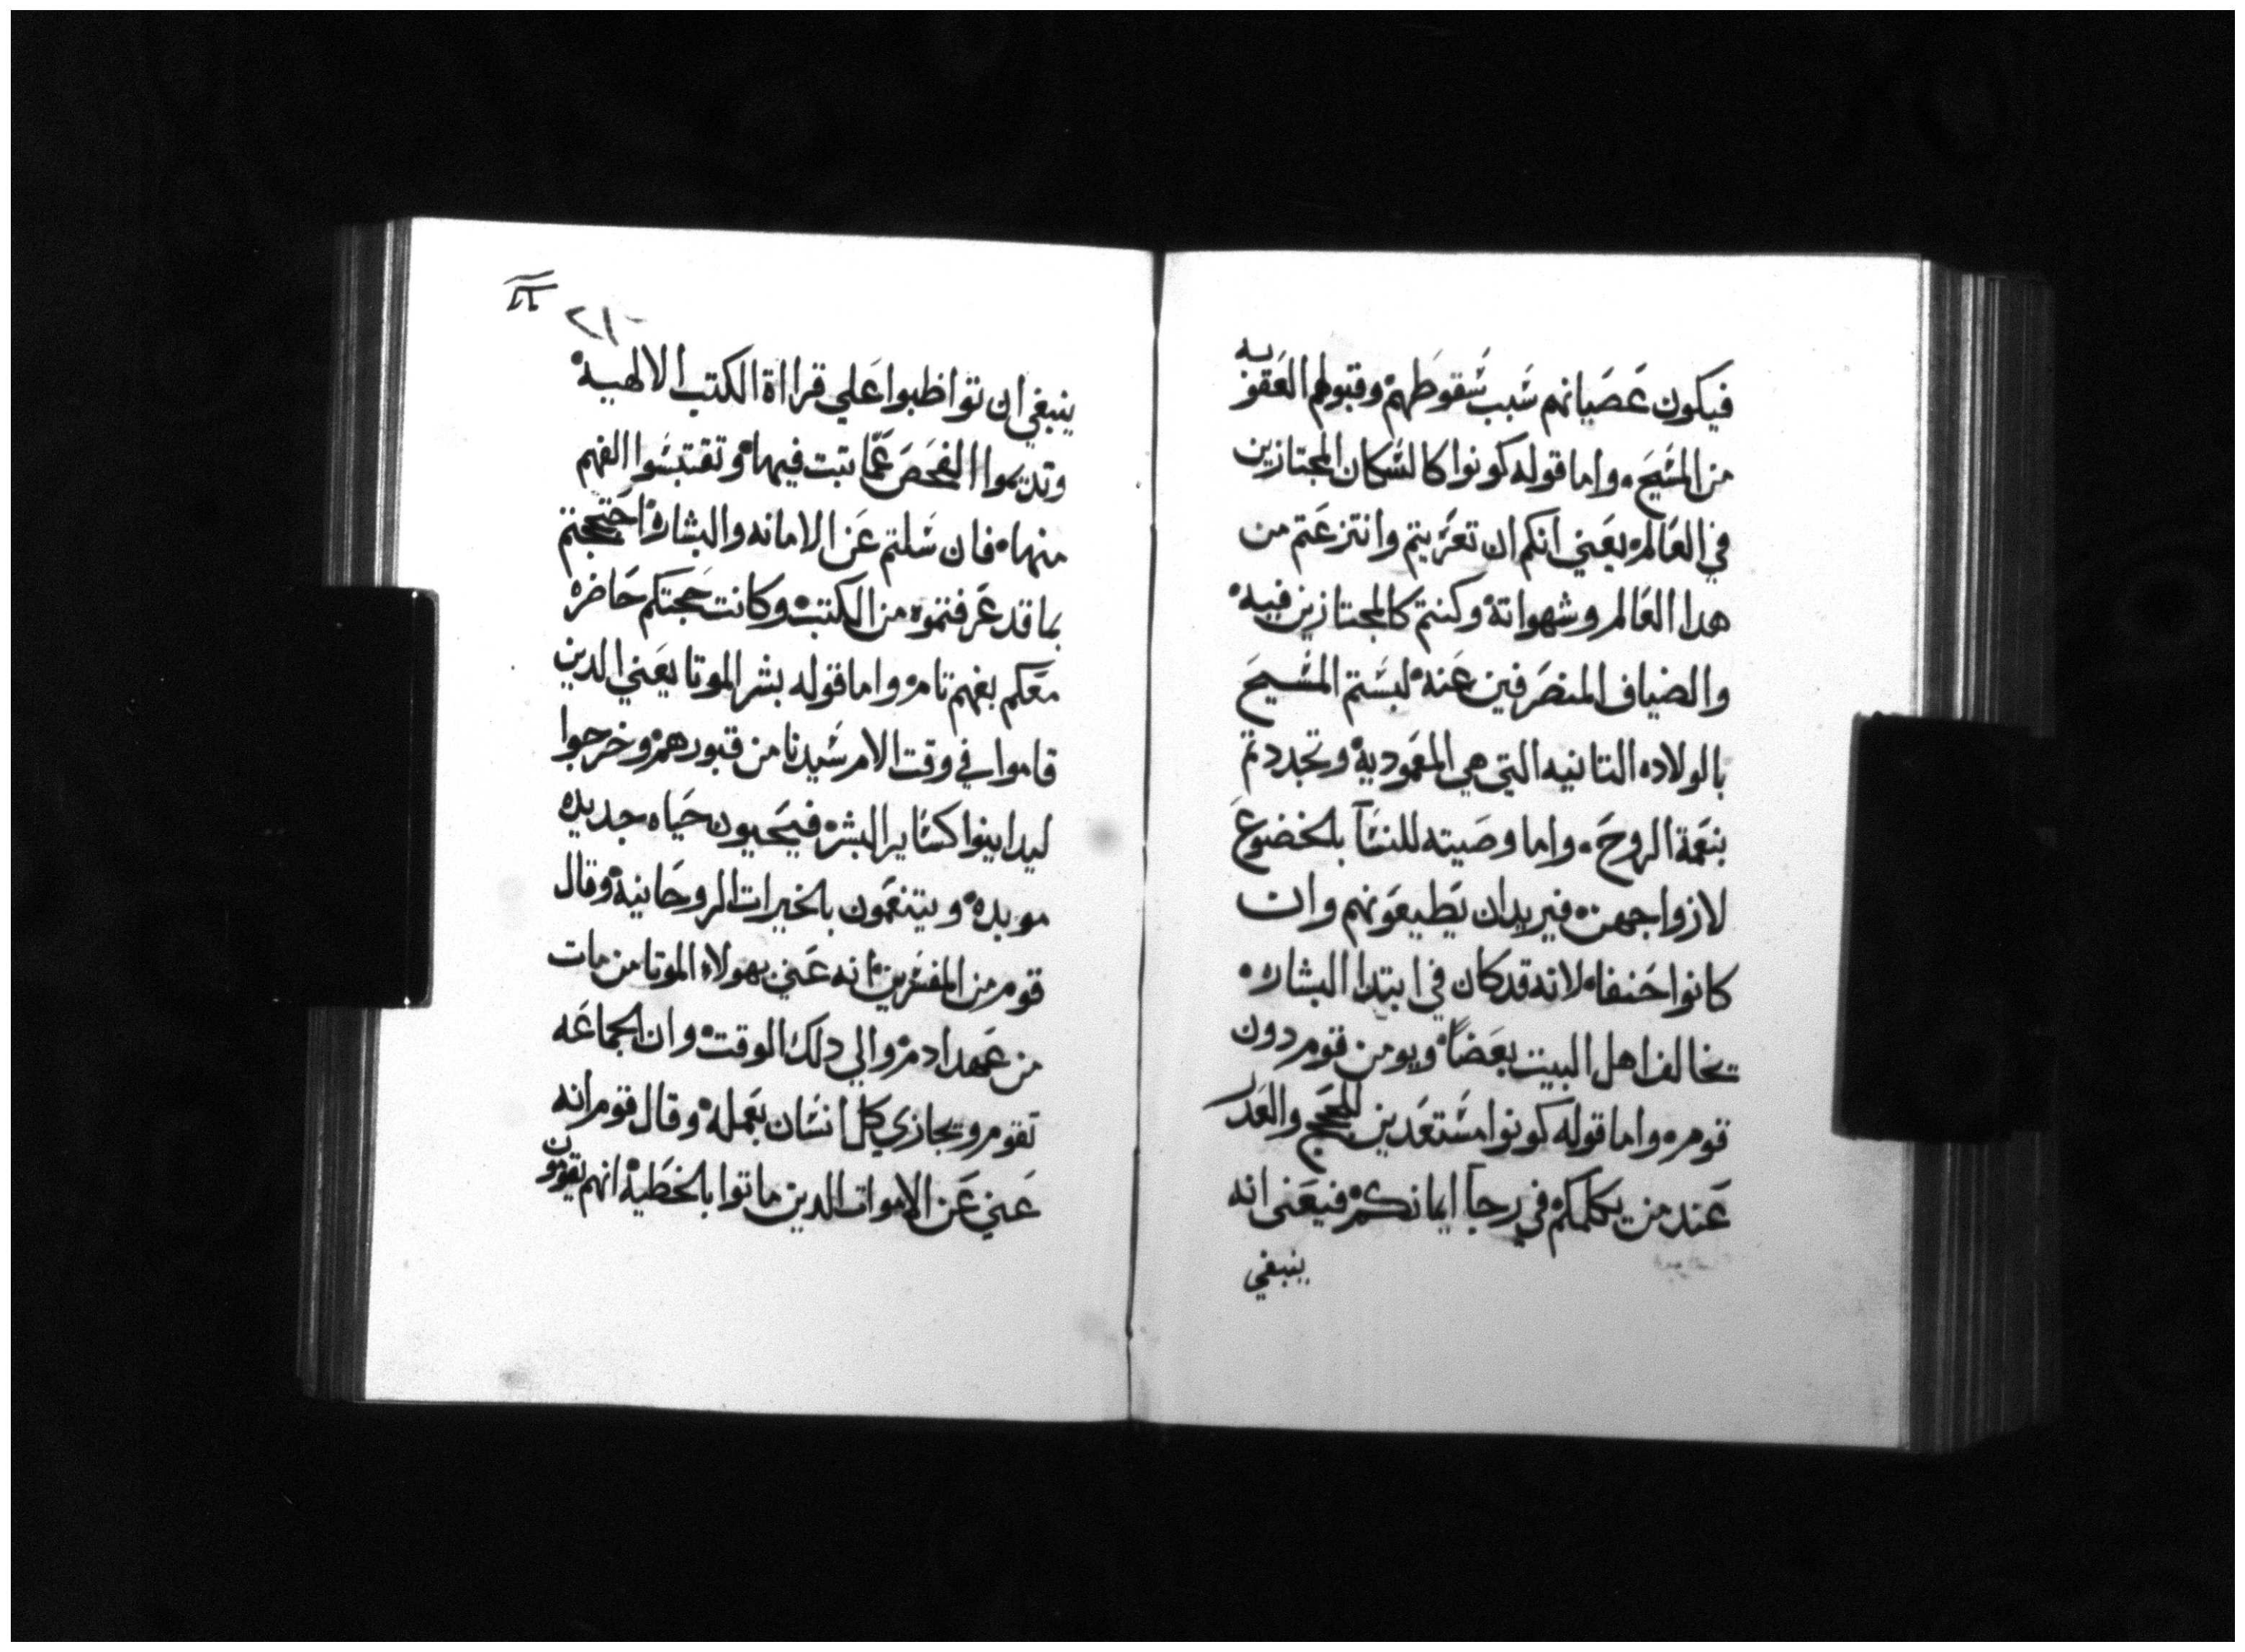 فيكون عصيانهم شبب شقوطهم وقبولهم العقوبه
من المشيح. واما قوله كونوا كالشكان المجتازين
في العالم يعني انكم ان تعزيتم وانتزعتم من
هدا العالم وشهواته وكنتم كالمجتازين فيه
والضياف المنصرفين عنه لبشتم المشيح
بالولاده التانيه التي هي المعموديه وتجددتم
بنعمة الروح. واما وصيته للنشآ بالخضوع
لازواجهن فيريدان يطيعونهم وان
كانوا حنفا لانه قد كان في ابتدا البشاره
يخالف اهل البيت بعضاً ويومن قوم دون
قوم واما قوله كونوا مشتعدين للحجج والعدر
عند من يكلمكم في رجآ ايمانكم فيعني انه
ينبغي
٢١٠
ينبغي ان تواظبوا علي قرااة الكتب الالهيه
وتديموا الفحص عمّا تبت فيها وتقتبشوا الفهم
منها فان شلتم عن الامانه والبشاره احتججتم
بما قد عرفتموه من الكتب وكانت حجتكم حاضره
معكم بفهم تام واما قوله بشر الموتا يعني الدين
قاموا في وقت الام شيدنا من قبورهم وخرجوا
ليداينوا كشاير البشر فيحيون حياه جديده
موبده ويتنعمون بالخيرات الروحانيه وقال
قوم من المفشرين انه عني بهولاء الموتا من مات
من عهد ادم والي دلك الوقت وان الجماعه
تقوم ويجازي كل انشان بعمله وقال قوم انه
عني عن الاموات الدين ماتوا بالخطيه انهم يقومون